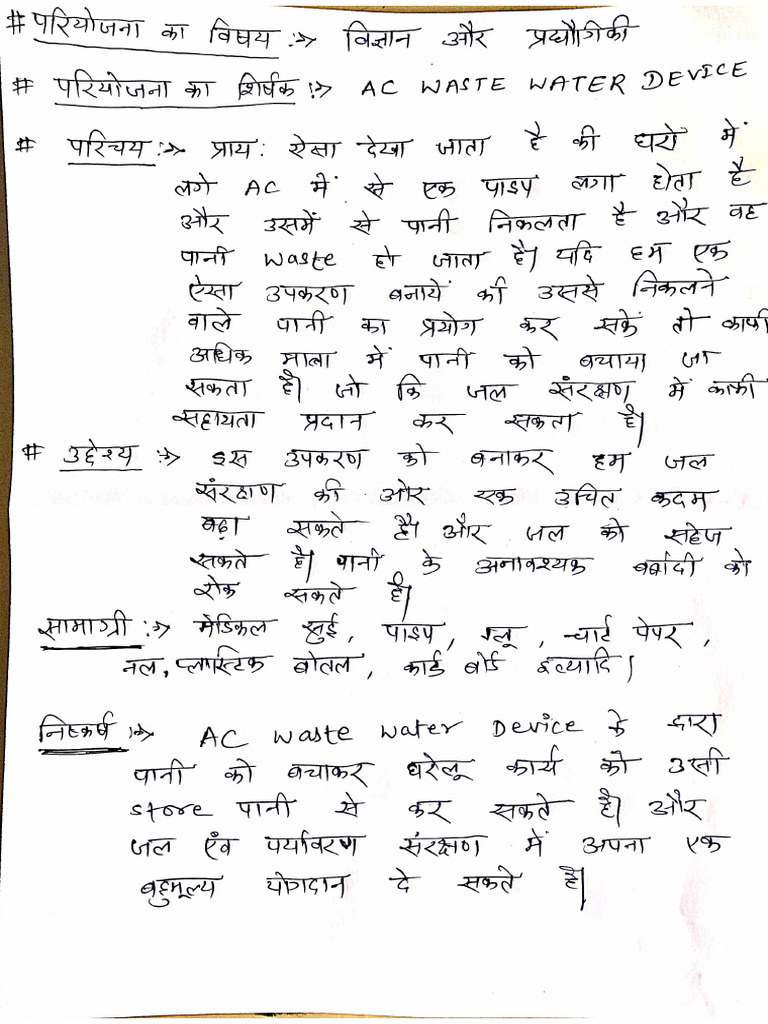 # परियोजना का विषय :-> विज्ञान और प्रद्यौगिकी
# परियोजना का शिर्षक :-> AC WASTE WATER DEVICE
# परिचय :-> प्राय: ऐसा देखा जाता है की घरों में
लगे AC में से एक पाइप लगा होता है
और उसमें से पानी निकलता है और वह
पानी waste हो जाता है। यदि हम एक
ऐसा उपकरण बनायें की उससे निकलने
वाले पानी का प्रयोग कर सकें तो काफी
अधिक मात्रा में पानी को बचाया जा
सकता है। जो कि जल संरक्षण में काफी
सहायता प्रदान कर सकता है।
# उद्देश्य :-> इस उपकरण को बनाकर हम जल
संरक्षण की ओर एक उचित कदम
बढ़ा सकते है। और जल को सहेज
सकते है। पानी के अनावश्यक बर्बादी को
रोक सकते है।
सामाग्री :-> मेडिकल सुई, पाइप, ग्लू, चार्ट पेपर,
नल, प्लास्टिक बोतल, कार्ड बोर्ड इत्यादि।
निष्कर्ष :-> AC waste water Device के द्वारा
पानी को बचाकर घरेलू कार्य को उसी
store पानी से कर सकते है। और
जल एंव पर्यावरण संरक्षण में अपना एक
बहुमूल्य योगदान दे सकते है।